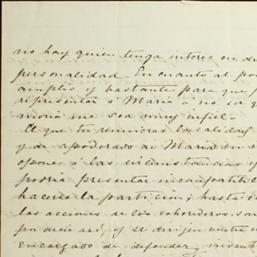 no hay quien tenga interes en de
personalidad. En cuanto al po
amplio y bastante para que p
representar á Maria ó no lo q
moria me sea muy infiel.
El que tu reunieras la calidad
y de apoderado de Maria en n
opone á las circunstancias y
podria presentar incompatibili
hacerse la particion; hasta c
las acciones de los coherederos son
por decir asi, y se dirigen contra
encargado de defender,